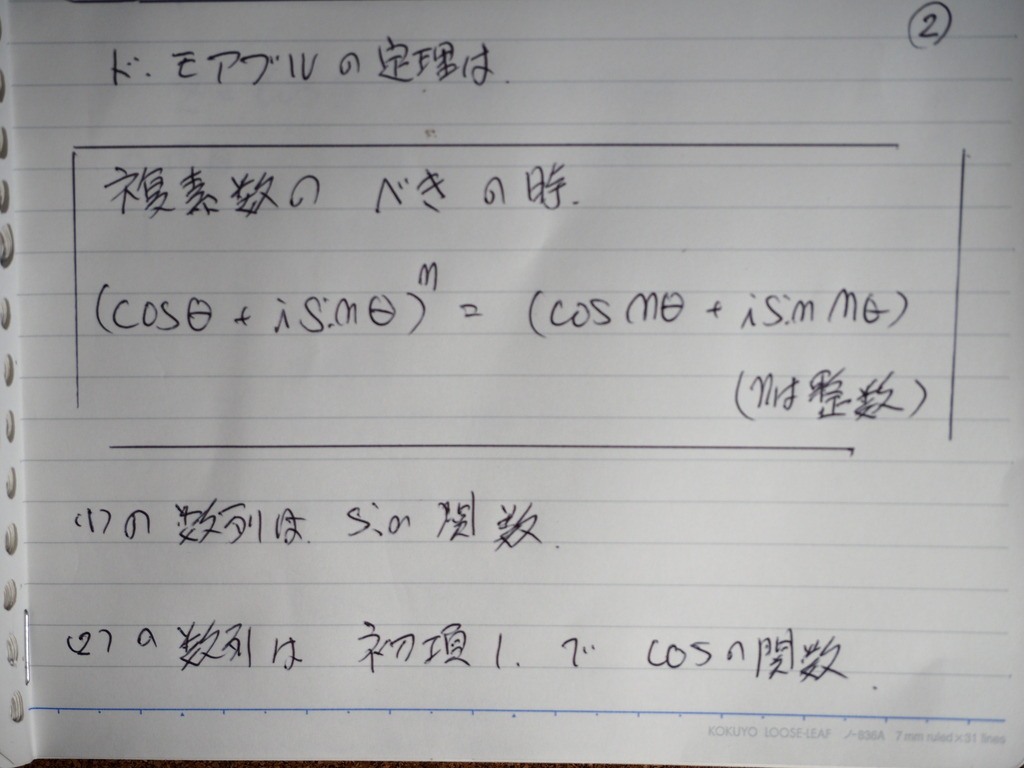 ②
ド・モアブルの定理は.
複素数の べきの時.
(cosθ + i sinθ)^n = (cos nθ + i sin nθ)
(nは整数)
(1)の数列は. sinの関数.
(2)の数列は 初項1. で cosの関数.
KOKUYO LOOSE-LEAF ノ-836A 7 mm ruled×31 lines